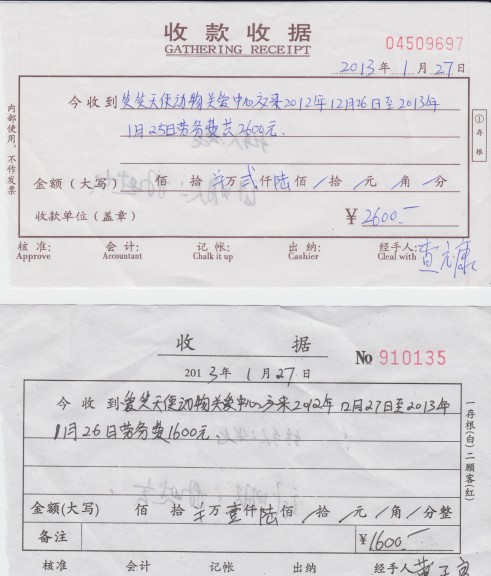 收款收据
GATHERING RECEIPT
04509697
2013年1月27日
今收到爱笑天使动物关爱中心交来2012年12月26日至2013年
1月25日劳务费共2600元.
金额（大写） 佰 拾 羊万 贰仟陆佰 / 拾 / 元 / 角 / 分
收款单位（盖章） ¥ 2600.-
核准: 会计: 记帐: 出纳: 经手人:
Approve Accountant Chalk it up Cashier Cleal with
内部使用，不作发票
①存根
收 据
2013年1月27日
No 910135
今收到爱笑天使动物关爱中心交来2012年12月27日至2013年
1月26日劳务费1600元.
金额(大写) 佰 拾 羊万 壹仟陆佰 / 拾 / 元 / 角 / 分整
备注 ¥1600.-
核准 会计 记帐 出纳 经手人
一存根(白)二顾客(红)